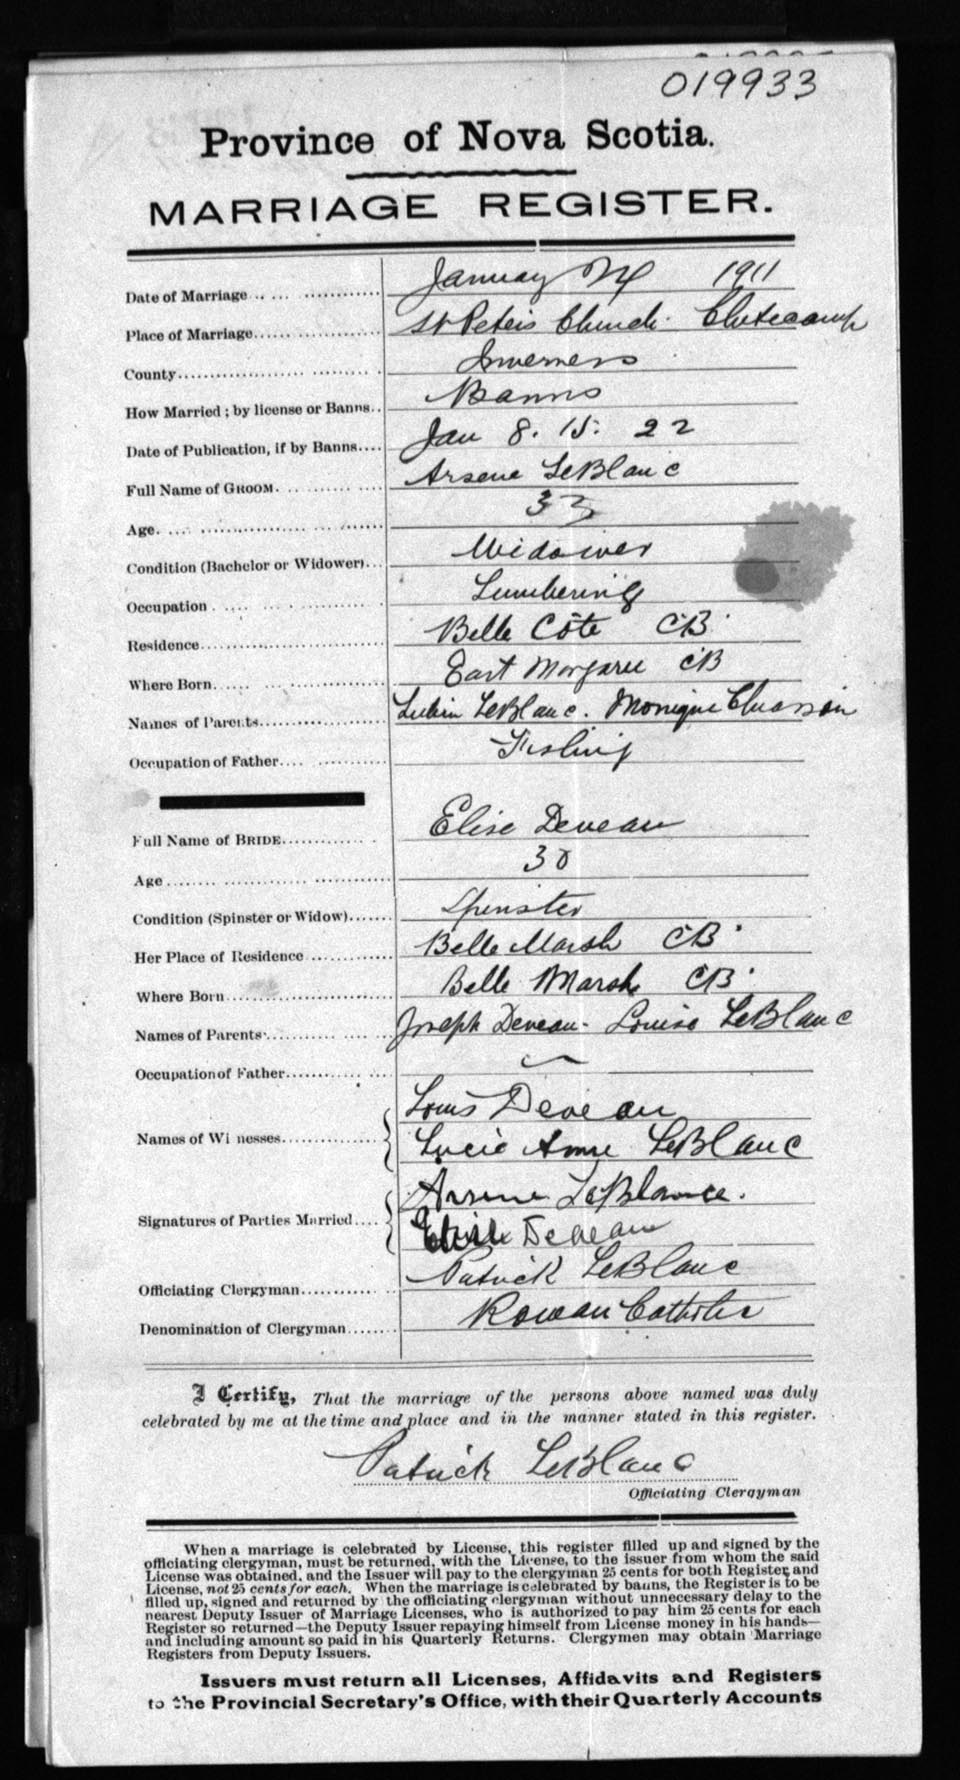 019933
Province of Nova Scotia.
MARRIAGE REGISTER.
Date of Marriage January 1911
Place of Marriage St Peter's Church. Cheticamp
County Inverness
How Married; by license or Banns.. Banns
Date of Publication, if by Banns.... Jan 8. 15. 22
Full Name of GROOM. Arsene LeBlanc
Age. 33
Condition (Bachelor or Widower)... Widower
Occupation Lumbering
Residence Belle Côte CB.
Where Born East Margaree CB
Names of Parents Lubin LeBlanc. Monique Chiasson
Occupation of Father Fishing
Full Name of BRIDE Elise Deveau
Age 30
Condition (Spinster or Widow) Spinster
Her Place of Residence Belle Marsh CB.
Where Born Belle Marsh CB.
Names of Parents Joseph Deveau - Louise LeBlanc
Occupation of Father
Louis Deveau
Names of Witnesses Lucie Anne LeBlanc
Arsene LeBlance.
Signatures of Parties Married.... Deveau
Officiating Clergyman Patrick LeBlanc
Denomination of Clergyman Roman Catholic
I Certify, That the marriage of the persons above named was duly
celebrated by me at the time and place and in the manner stated in this register.
Patrick LeBlanc
Officiating Clergyman
When a marriage is celebrated by License, this register filled up and signed by the
officiating clergyman, must be returned, with the License, to the issuer from whom the said
License was obtained, and the Issuer will pay to the clergyman 25 cents for both Register and
License, not 25 cents for each. When the marriage is celebrated by banns, the Register is to be
filled up, signed and returned by the officiating clergyman without unnecessary delay to the
nearest Deputy Issuer of Marriage Licenses, who is authorized to pay him 25 cents for each
Register so returned—the Deputy Issuer repaying himself from License money in his hands—
and including amount so paid in his Quarterly Returns. Clergymen may obtain Marriage
Registers from Deputy Issuers.
Issuers must return all Licenses, Affidavits and Registers
to the Provincial Secretary's Office, with their Quarterly Accounts